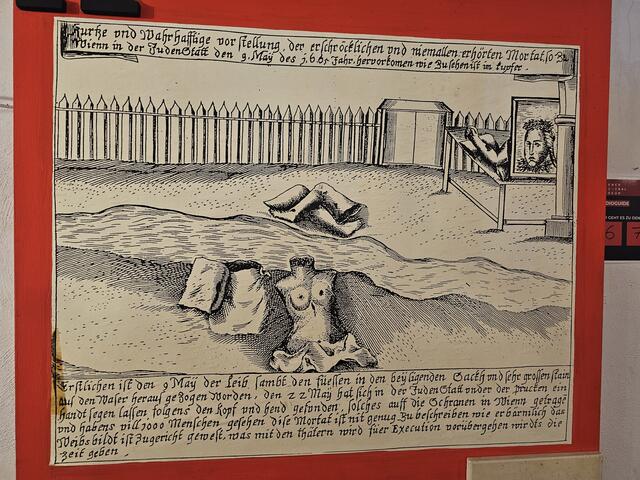 Kurtze vnd Wahrhafftige vor stellung, der erschröcklichen vnd niemallen erhörten Mortat, so zu
Wienn in der Juden Statt den 9. Maÿ des 1665 Jahr. hervorkomen wie zu sehen ist in kupfer.
Erstlichen ist den 9 Maÿ der Leib sambt den füessen in den beÿligenden Sackh vnd sehr grossen stain
aus den Waser heraus gezogen worden, den 22 Maÿ hat sich in der Juden Statt vnder der prucken ein
hundt segen lassen, folgens den kopf vnd hend gefunden, solches auff die Schranen in Wienn getragē
vnd habens vill 1000 Menschen gesehen dise Mortat ist nit genug zu beschreiben wie erbärmlich das
Weibsbildt ist zugericht gewest, was mit den thätern wird fuer Execution vorübergehen wirdts die
Zeit geben.
6
7